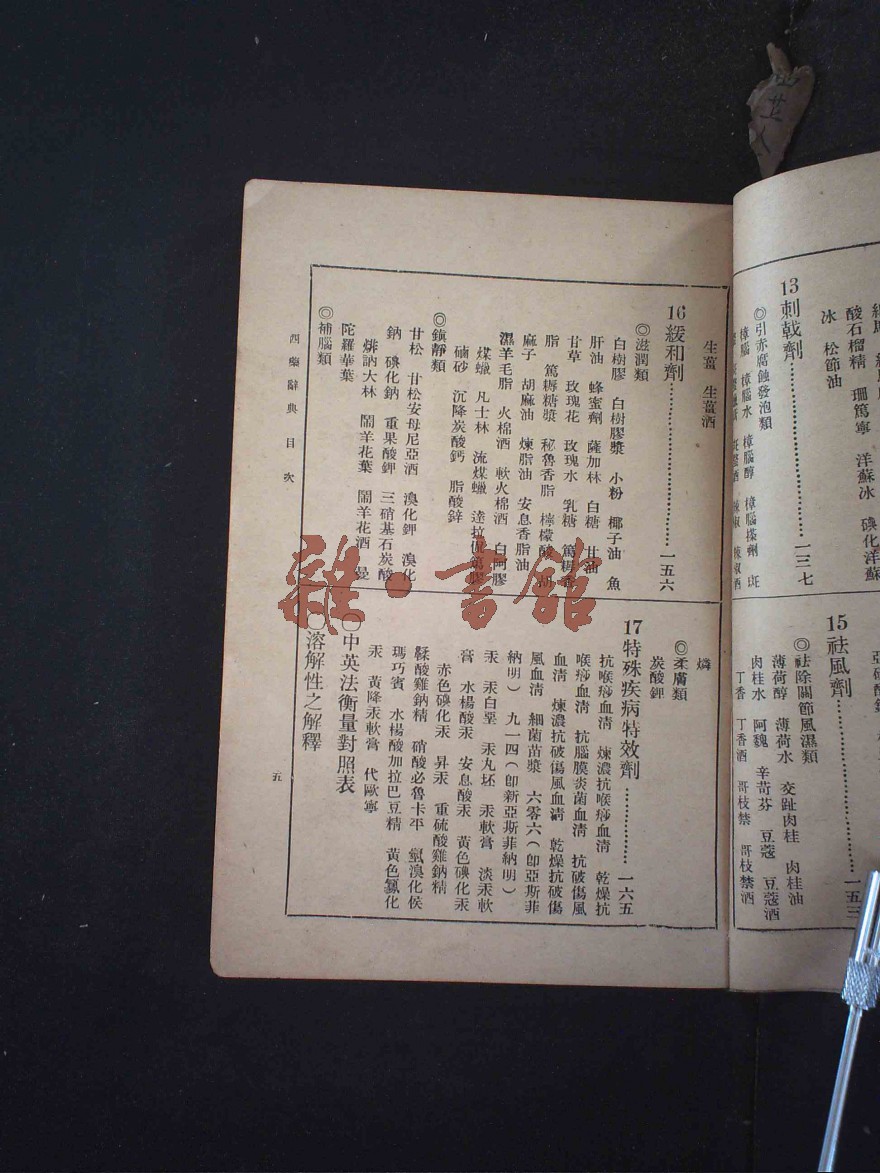 13刺戟劑……一三七
◎引赤腐蝕發泡類
樟腦　樟腦水　樟腦醇　樟腦搽劑　斑
酸石榴精　珊篤寧　洋蘇冰　碘化洋蘇
冰　松節油
15祛風劑……一五三
◎祛除關節風濕類
薄荷醇　薄荷水　交趾肉桂　肉桂油
肉桂水　阿魏　辛苛芬　豆蔻　豆蔻酒
丁香　丁香酒　哥枝禁　哥枝禁酒
生薑　生薑酒
16緩和劑……一五六
◎滋潤類
白樹膠　白樹膠漿　小粉　椰子油　魚
肝油　蜂蜜劑　薩加林　白糖　甘油
甘草　玫瑰花　玫瑰水　乳糖　篤耨香
脂　篤耨糖漿　秘魯香脂　檸檬酸　胡
麻子　胡麻油　煉脂油　安息香脂油
濕羊毛脂　火棉酒　軟火棉酒　白阿膠
煤蠟　凡士林　流煤蠟　達拉侃篤膠
硇砂　沉降炭酸鈣　脂酸鋅
◎鎮靜類
甘松　甘松安母尼亞酒　溴化鉀　溴化
鈉　碘化鈉　重果酸鉀　三硝基石炭酸
煋訥大林　鬧羊花葉　鬧羊花酒　曼
陀羅華葉
◎補腦類
燐
◎柔膚類
炭酸鉀
17特殊疾病特效劑……一六五
抗喉痧血淸　煉濃抗喉痧血淸　乾燥抗
喉痧血淸　抗腦膜炎菌血淸　抗破傷風
血淸　煉濃抗破傷風血淸　乾燥抗破傷
風血淸　細菌苗漿　六零六（卽亞斯菲
納明）　九一四（卽新亞斯菲納明）
汞　汞白堊　汞丸坯　汞軟膏　淡汞軟
膏　水楊酸汞　安息酸汞　黃色碘化汞
赤色碘化汞　昇汞　重硫酸雞鈉精
鞣酸雞鈉精　硝酸必魯卡平　氫溴化侯
瑪巧賓　水楊酸加拉巴豆精　黃色氯化
汞　黃降汞軟膏　代歐寧
◎中英法衡量對照表
◎溶解性之解釋
西藥辭典　目次
五
雜·書館